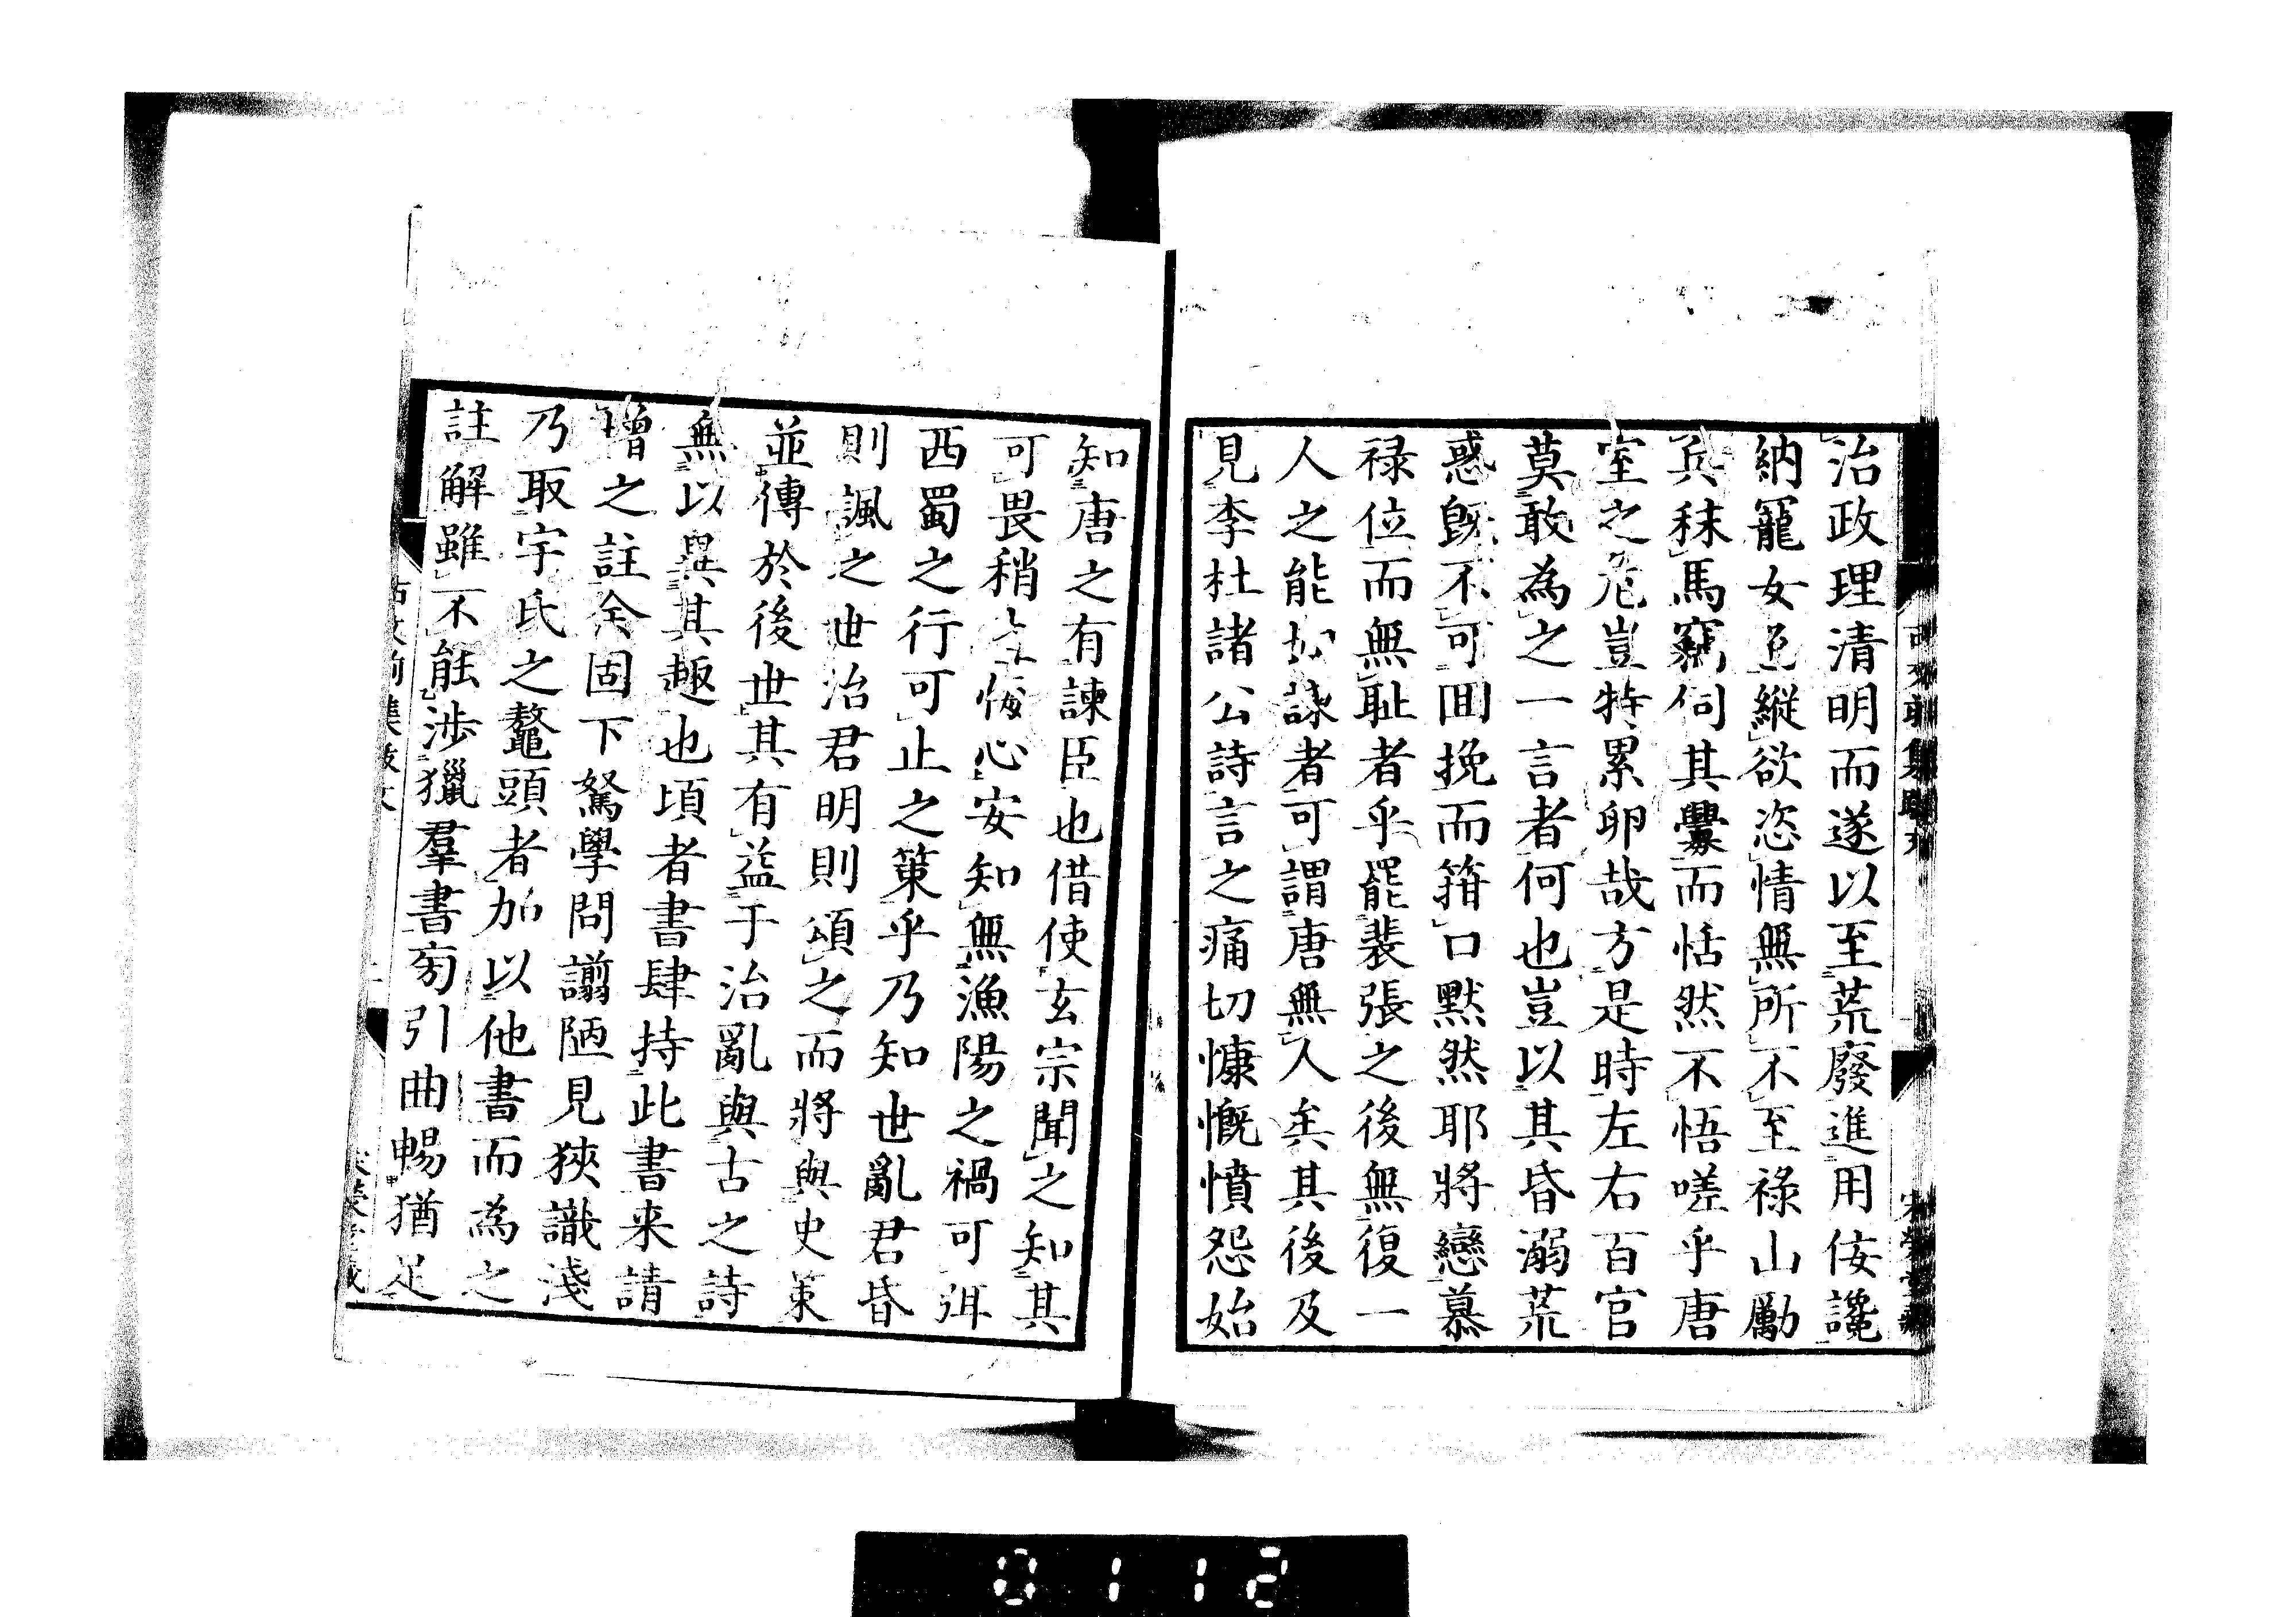 治政理清明而遂以至荒廢進用佞讒
納寵女色縱欲恣情無所不至祿山勵
兵秣馬竊伺其釁而恬然不悟嗟乎唐
室之危豈特累卵哉方是時左右百官
莫敢為之一言者何也豈以其昏溺荒
惑既不可囬挽而箝口默然耶將戀慕
祿位而無耻者乎罷裴張之後無復一
人之能如詠者可謂唐無人矣其後及
見李杜諸公詩言之痛切慷慨憤怨始
知唐之有諫臣也借使玄宗聞之知其
可畏稍生悔心安知無漁陽之禍可弭
西蜀之行可止之策乎乃知世亂君昏
則諷之世治君明則頌之而將與史策
並傳於後世其有益于治亂與古之詩
無以異其趣也頃者書肆持此書来請
增之註余固下駑學問謭陋見狹識淺
乃取宇氏之鼇頭者加以他書而為之
註解雖不能渉獵羣書旁引曲暢猶足
0112